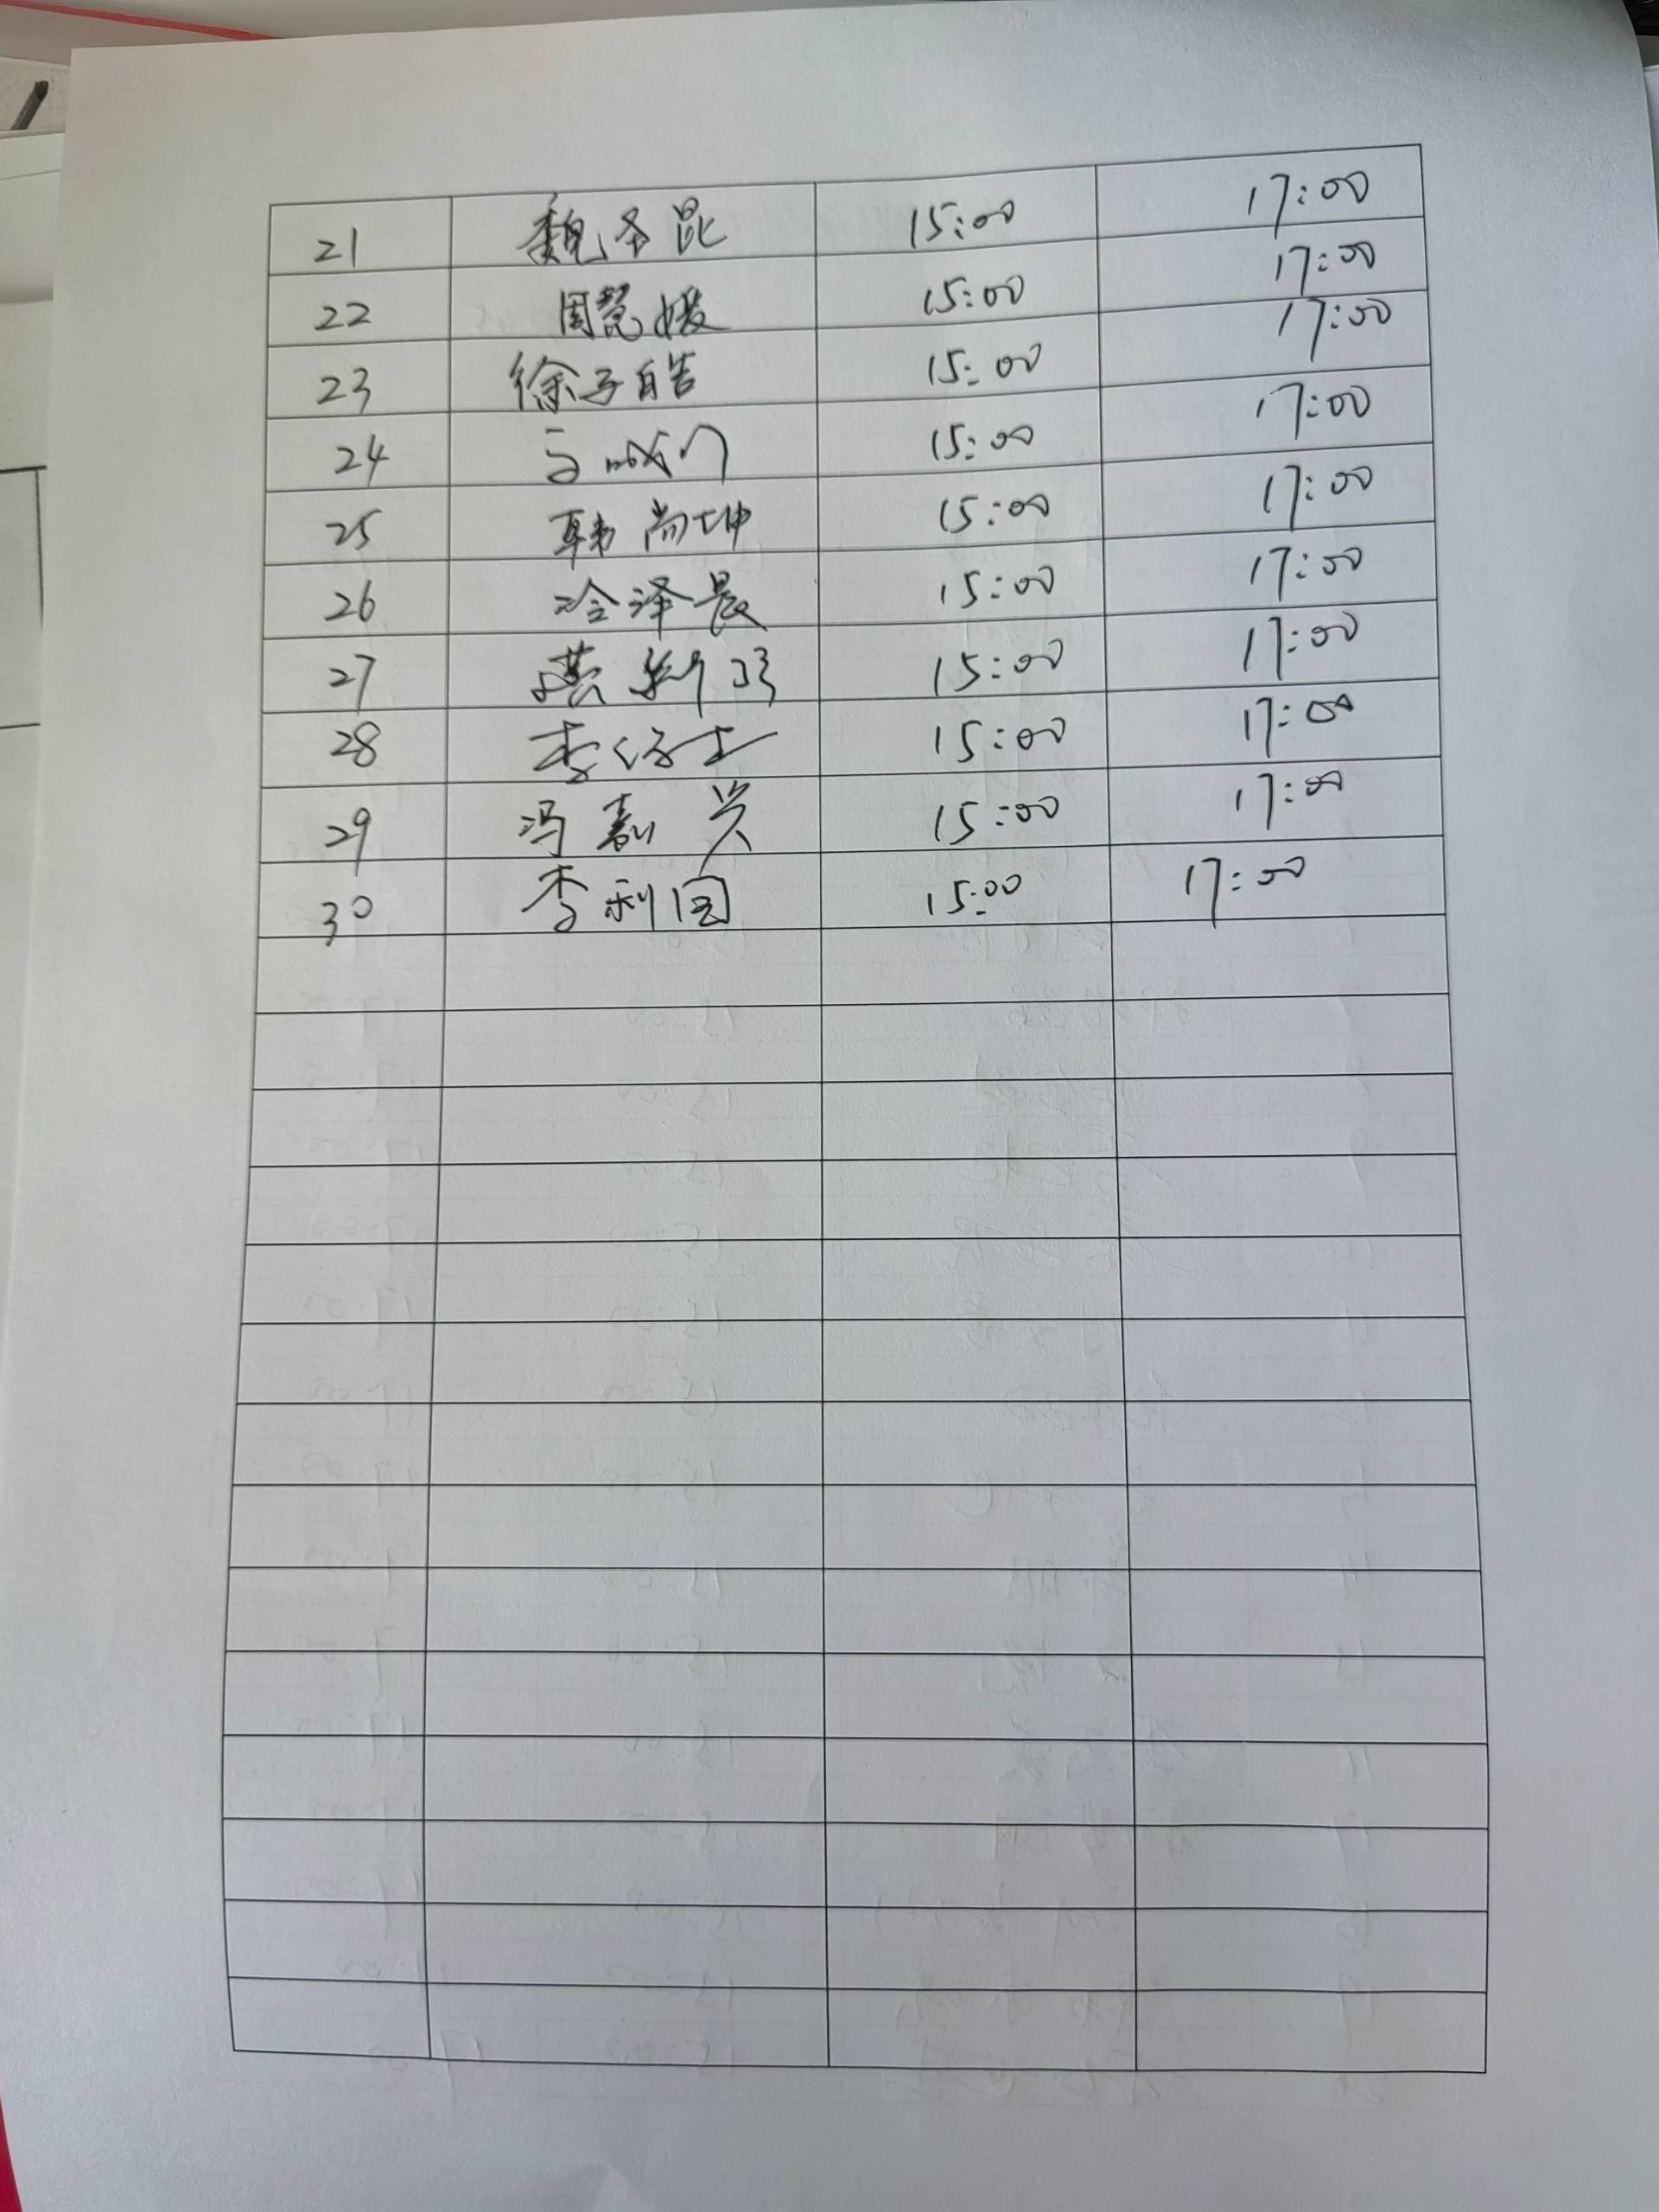 21 魏圣昆 15:00 17:00
22 周慧媛 15:00 17:00
23 徐子皓 15:00 17:00
24 15:00 17:00
25 韩尚坤 15:00 17:00
26 冷泽晨 15:00 17:00
27 15:00 17:00
28 李 15:00 17:00
29 冯嘉兴 15:00 17:00
30 李利国 15:00 17:00